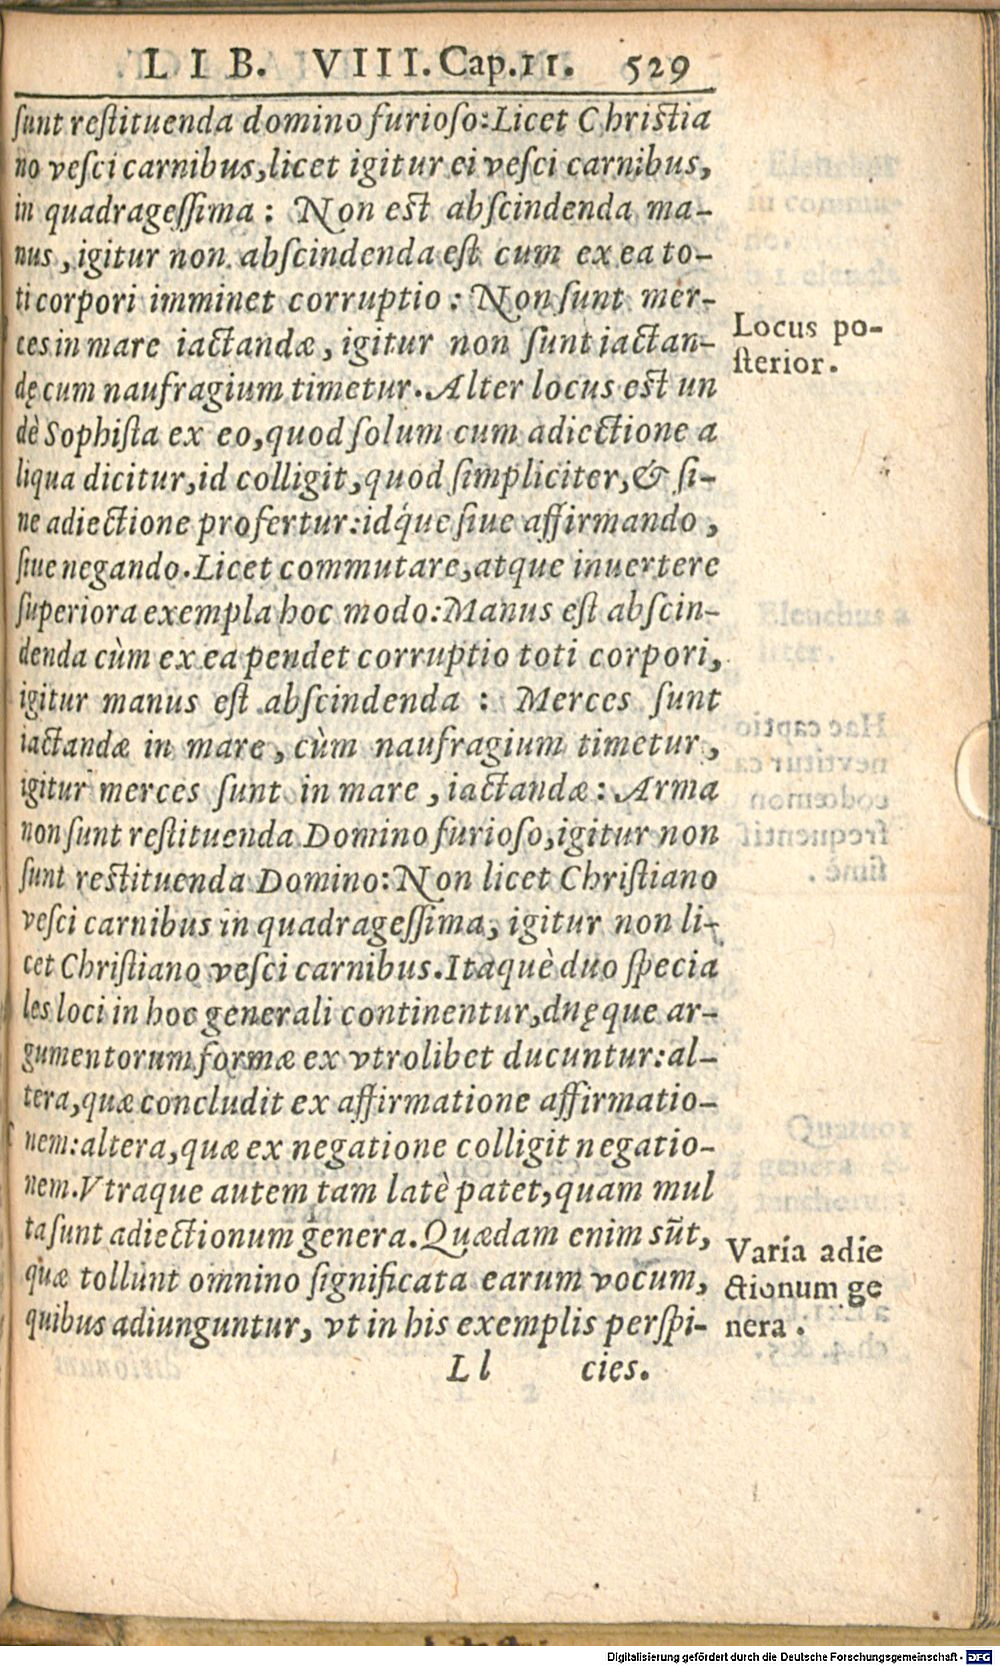 LIB. VIII. Cap. 11. 529
sunt restituenda domino furioso: Licet Christia
no vesci carnibus, licet igitur ei vesci carnibus,
in quadragessima: Non est abscindenda ma-
nus, igitur non abscindenda est cum ex ea to-
ti corpori imminet corruptio: Non sunt mer-
ces in mare iactandæ, igitur non sunt iactan-
dę cum naufragium timetur. Alter locus est un
dè Sophista ex eo, quod solum cum adiectione a
liqua dicitur, id colligit, quod simpliciter, & si-
ne adiectione profertur: idq́ue siue affirmando,
siue negando. Licet commutare, atque inuertere
superiora exempla hoc modo: Manus est abscin-
denda cùm ex ea pendet corruptio toti corpori,
igitur manus est abscindenda: Merces sunt
iactandæ in mare, cùm naufragium timetur,
igitur merces sunt in mare, iactandæ: Arma
non sunt restituenda Domino furioso, igitur non
sunt restituenda Domino: Non licet Christiano
vesci carnibus in quadragessima, igitur non li-
cet Christiano vesci carnibus. Itaquè duo specia
les loci in hoc generali continentur, duęque ar-
gumentorum formæ ex vtrolibet ducuntur: al-
tera, quæ concludit ex affirmatione affirmatio-
nem: altera, quæ ex negatione colligit negatio-
nem. Vtraque autem tam latè patet, quam mul
ta sunt adiectionum genera. Quædam enim sũt,
quæ tollunt omnino significata earum vocum,
quibus adiunguntur, vt in his exemplis perspi-
Ll cies.
Locus po-
sterior.
Varia adie
ctionum ge
nera.
Digitalisierung gefördert durch die Deutsche Forschungsgemeinschaft - DFG